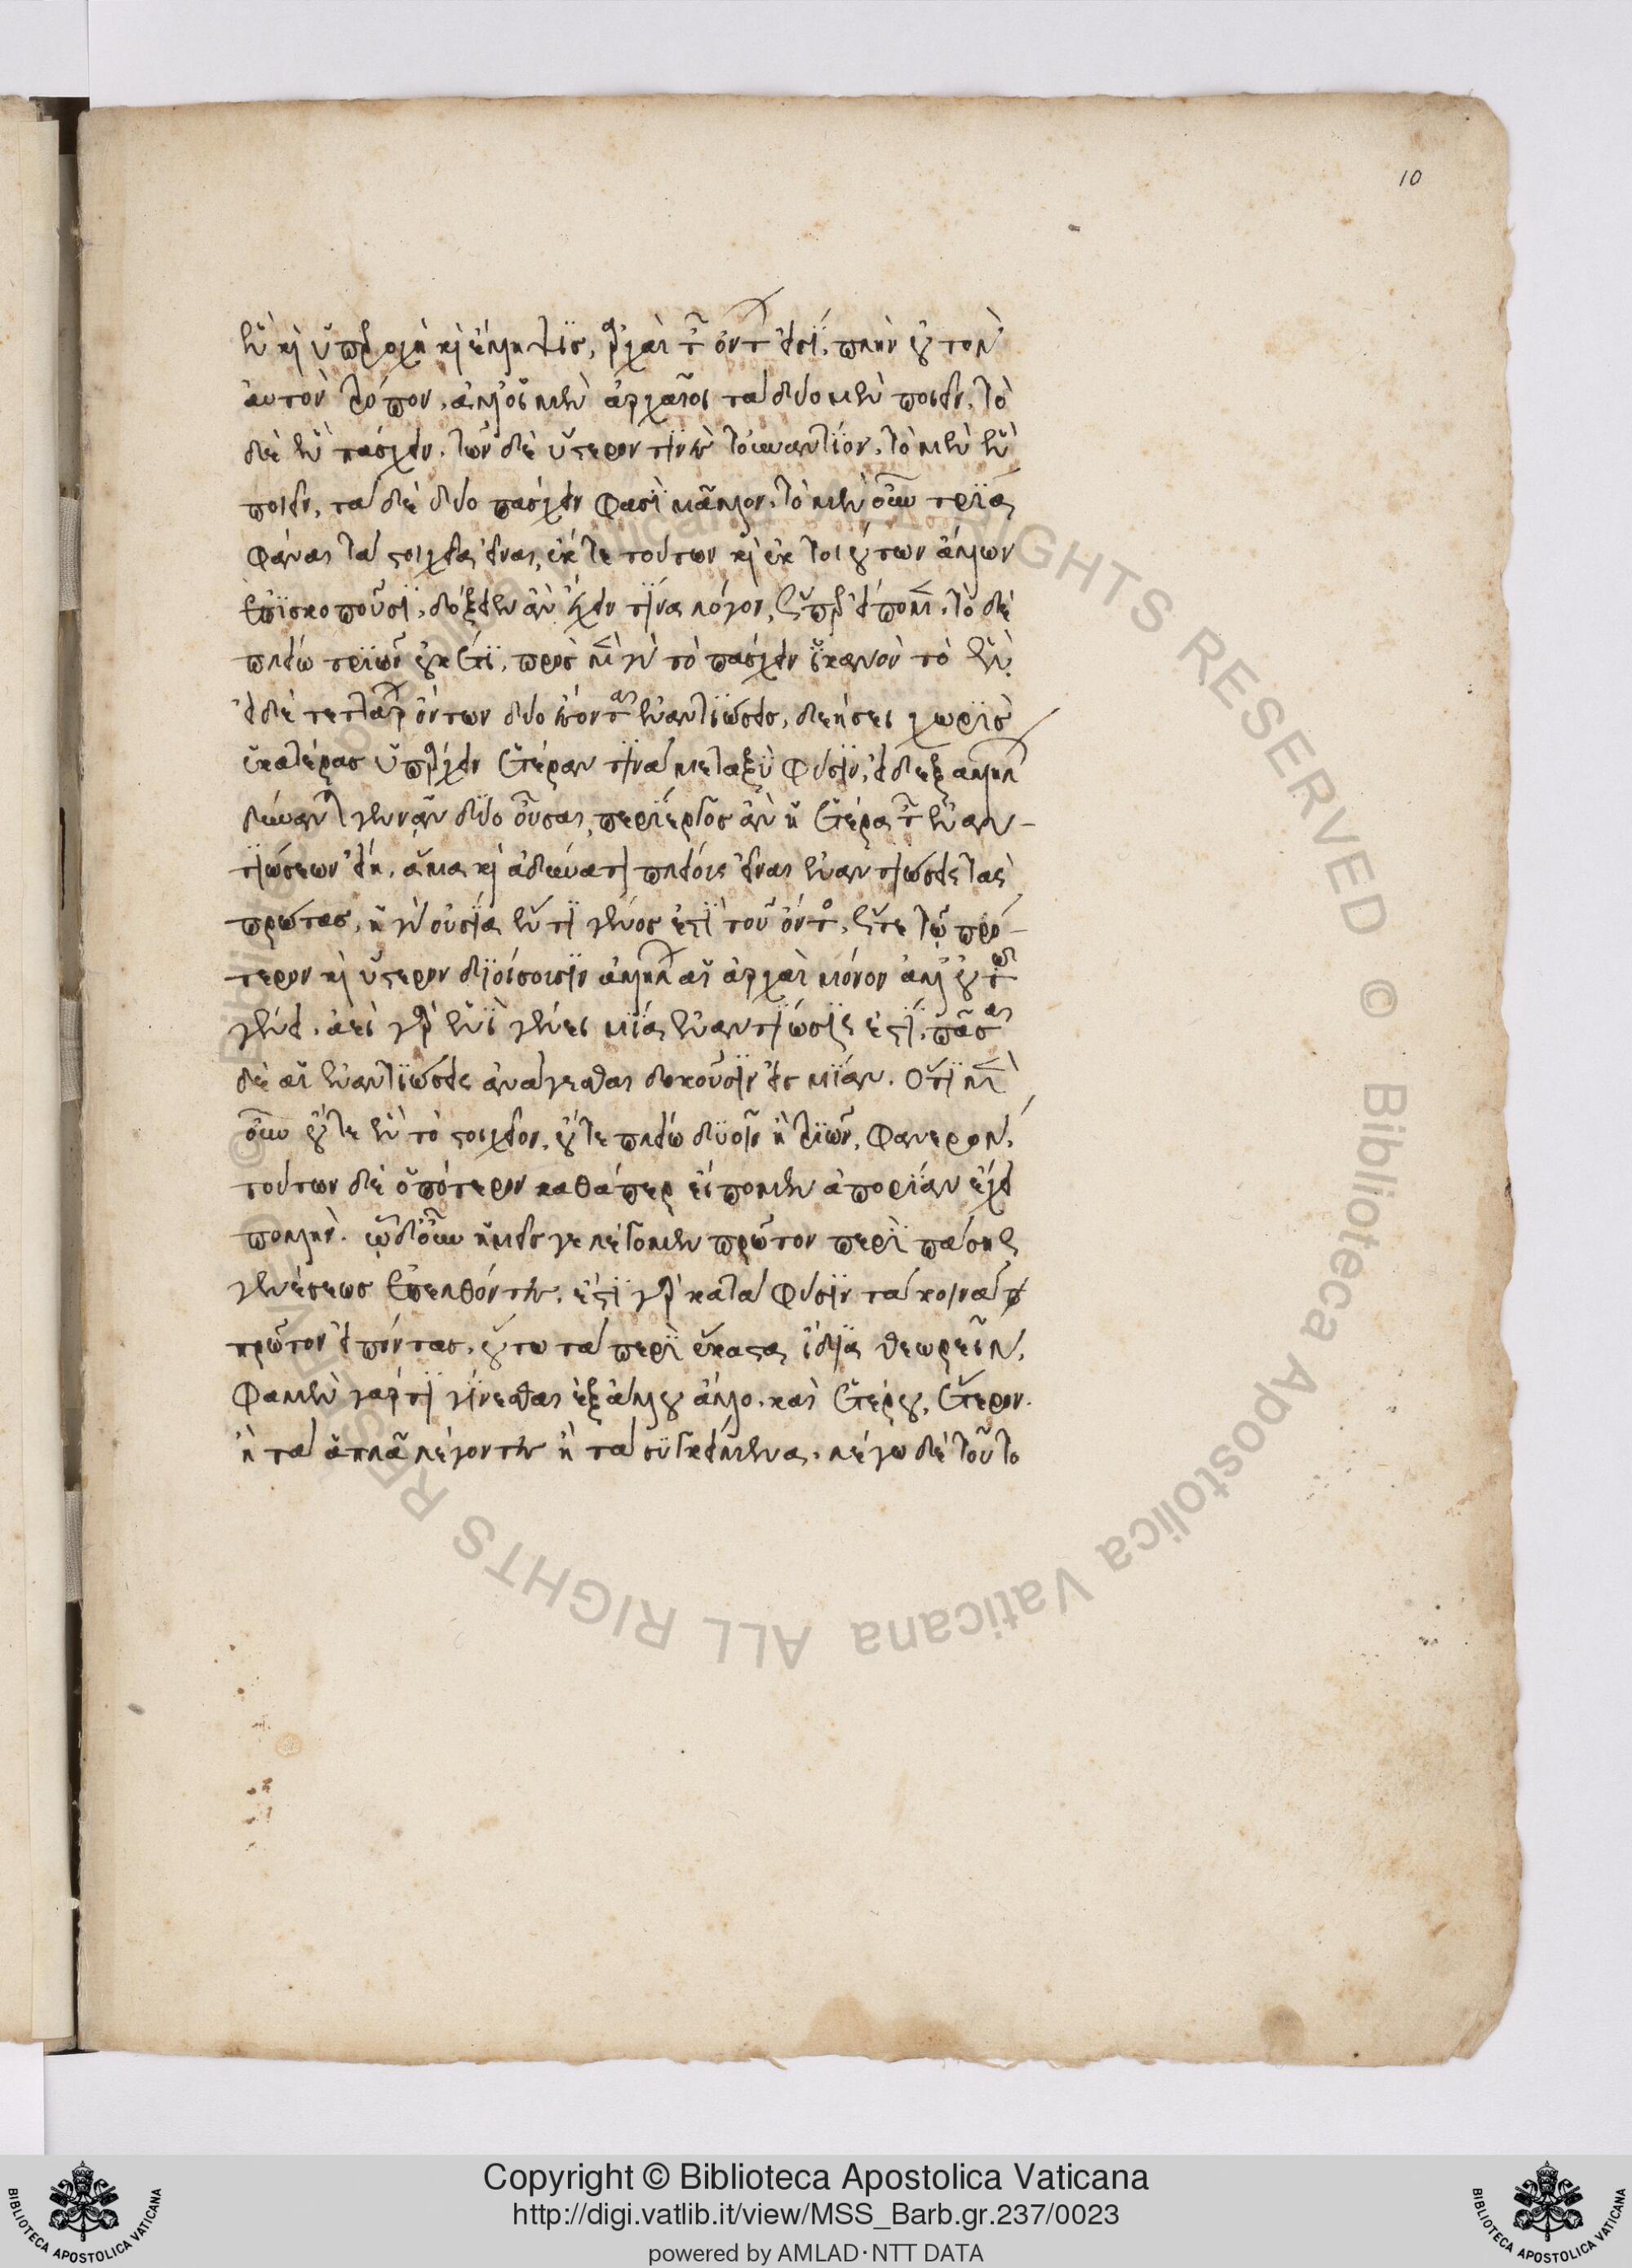 10
ἓν καὶ ὑπεροχὴ καὶ ἔλλειψις, ἀρχαὶ τῶν ὄντων εἰσί. πλὴν οὐ τὸν
αὐτὸν τρόπον, ἀλλ' οἱ μὲν ἀρχαῖοι τὰ δύο μὲν ποιεῖν, τὸ
δὲ ἓν πάσχειν. τῶν δὲ ὕστερόν τινες τοὐναντίον, τὸ μὲν ἓν
ποιεῖν, τὰ δὲ δύο πάσχειν φασὶ μᾶλλον. τὸ μὲν οὖν τρία
φάναι τὰ στοιχεῖα εἶναι, ἔκ τε τούτων καὶ ἐκ τοιούτων ἄλλων
ἐπισκοποῦσι, δόξειεν ἂν ἔχειν τινὰ λόγον, ὥσπερ εἴπομεν. τὸ δὲ
πλείω τριῶν οὐκέτι. πρὸς μὲν γὰρ τὸ πάσχειν ἱκανὸν τὸ ἕν.
εἰ δὲ τεττάρων ὄντων δύο ἔσονται ἐναντιώσεις, δεήσει χωρὶς
ἑκατέρας ὑπάρχειν ἑτέραν τινὰ μεταξὺ φύσιν, εἰ δ' ἐξ ἀλλήλων
δύνανται γεννᾶν δύο οὖσαι, περίεργος ἂν ἡ ἑτέρα τῶν ἐναν-
τιώσεων εἴη. ἅμα καὶ ἀδύνατον πλείους εἶναι ἐναντιώσεις τὰς
πρώτας, ἡ γὰρ οὐσία ἕν τι γένος ἐστὶ τοῦ ὄντος, ὥστε τῷ πρό-
τερον καὶ ὕστερον διοίσουσιν ἀλλήλων αἱ ἀρχαὶ μόνον ἀλλ' οὐ τῷ
γένει. ἀεὶ γὰρ ἐν ἑνὶ γένει μία ἐναντίωσίς ἐστι, πᾶσαι
δὲ αἱ ἐναντιώσεις ἀνάγεσθαι δοκοῦσιν εἰς μίαν. ὅτι μὲν
οὖν οὔτε ἓν τὸ στοιχεῖον, οὔτε πλείω δυοῖν ἢ τριῶν, φανερόν.
τούτων δὲ ὁπότερον καθάπερ εἴπομεν ἀπορίαν ἔχει
πολλήν. ὧδ' οὖν ἡμεῖς γε λέγομεν πρῶτον περὶ πάσης
γενέσεως ἐπελθόντες. ἔστι γὰρ κατὰ φύσιν τὰ κοινὰ
πρῶτον εἰπόντας, οὕτω τὰ περὶ ἕκαστα ἴδια θεωρεῖν.
Φαμὲν γάρ τι γίνεσθαι ἐξ ἄλλου ἄλλο. καὶ ἑτέρου, ἕτερον.
ἢ τὰ ἁπλᾶ λέγοντες ἢ τὰ συγκείμενα. λέγω δὲ τοῦτο
Copyright © Biblioteca Apostolica Vaticana
http://digi.vatlib.it/view/MSS_Barb.gr.237/0023
powered by AMLAD·NTT DATA